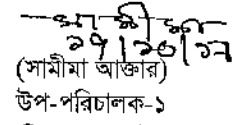 ২৭/১০/১৭
(সামীমা আক্তার)
উপ-পরিচালক-১